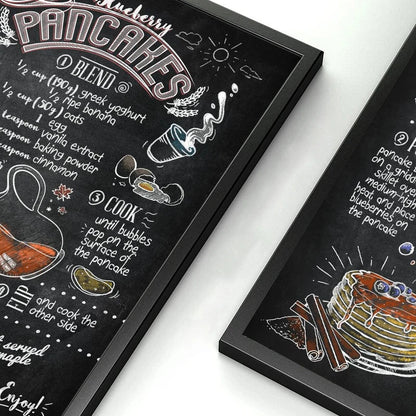 Blueberry
PANCAKES
① BLEND
1/2 cup (190g) greek yoghurt
1/2 ripe banana
1/2 cup (50g) oats
1 egg
teaspoon vanilla extract
teaspoon baking powder
teaspoon cinnamon
③ COOK
until bubbles
pop on the
surface of
the pancake
FLIP
and cook the
other side
served
maple
Enjoy!
pancake
on a
skillet
medium-high
heat and
blueberries on
the pancake